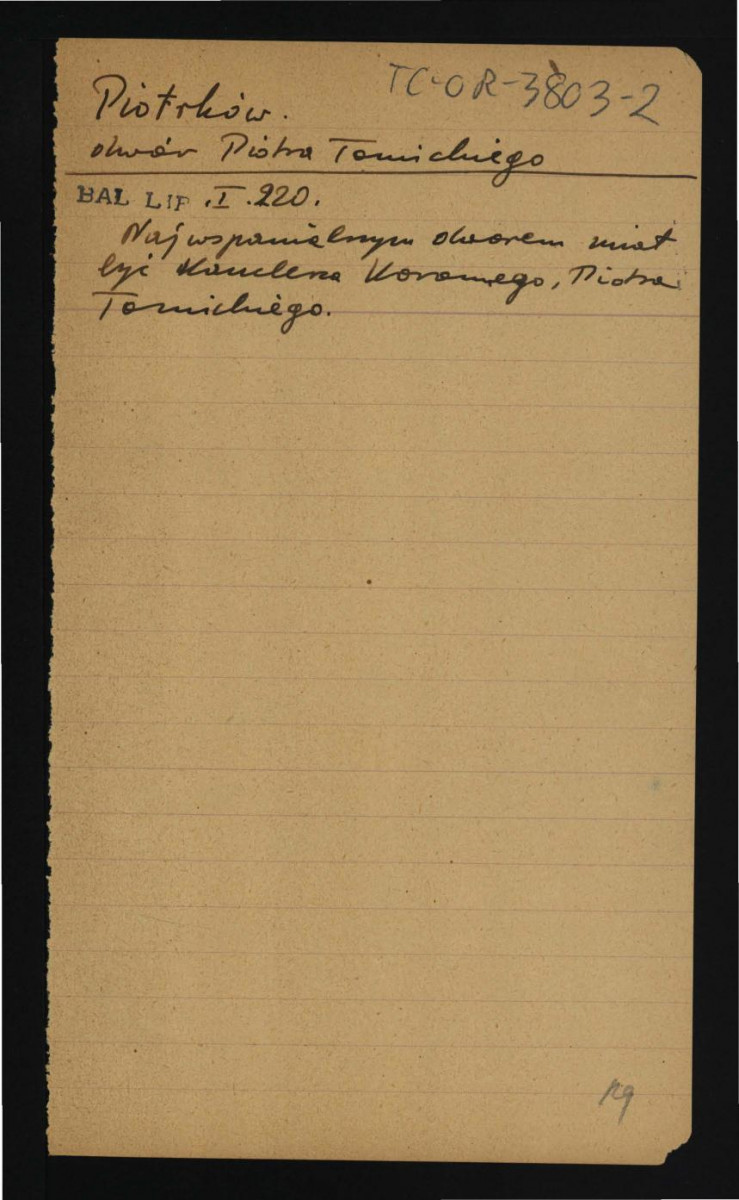 TC-OR-3803-2
Piotrków.
dwór Piotra Tomickiego
BAL LIP. I. 220.
Najwspanialszym dworem miał
być Kanclerza Koronnego, Piotra
Tomickiego.